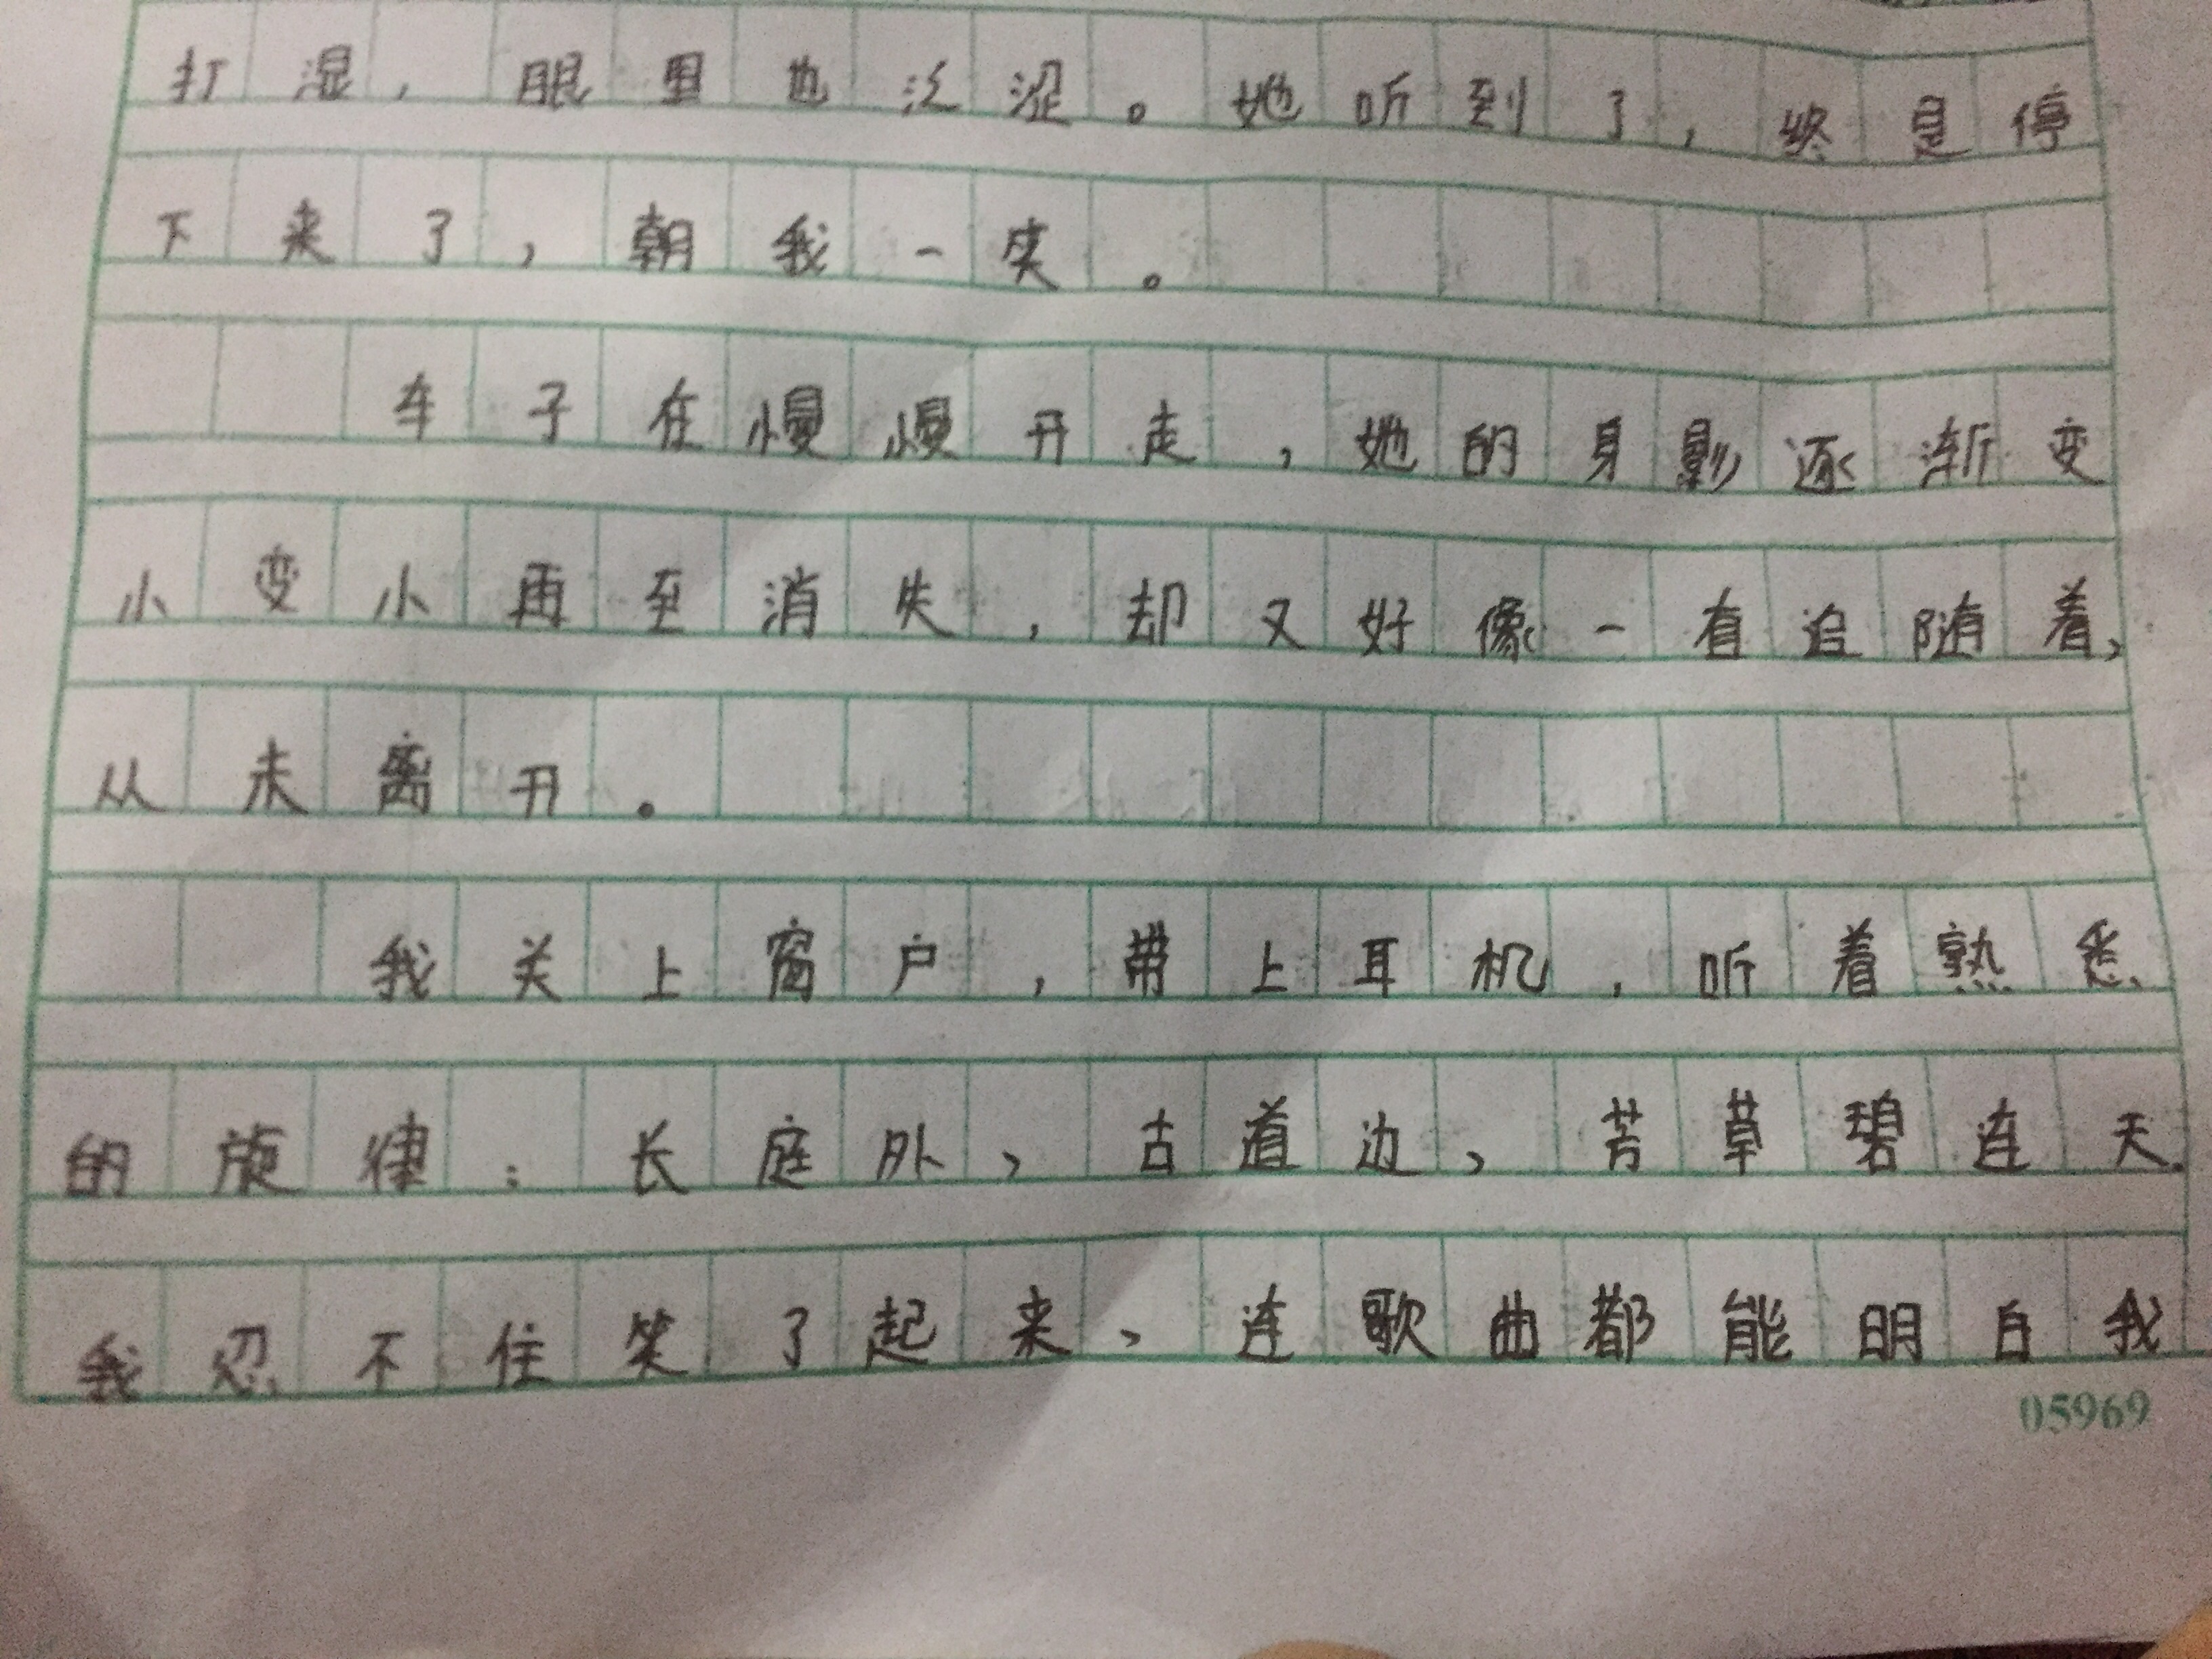 打湿，眼里也泛涩。她听到了，终是停
下来了，朝我一笑。
车子在慢慢开走，她的身影逐渐变
小变小再至消失，却又好像一直追随着，
从未离开。
我关上窗户，带上耳机，听着熟悉
的旋律：长庭外，古道边，芳草碧连天.
我忍不住笑了起来、连歌曲都能明白我
05969